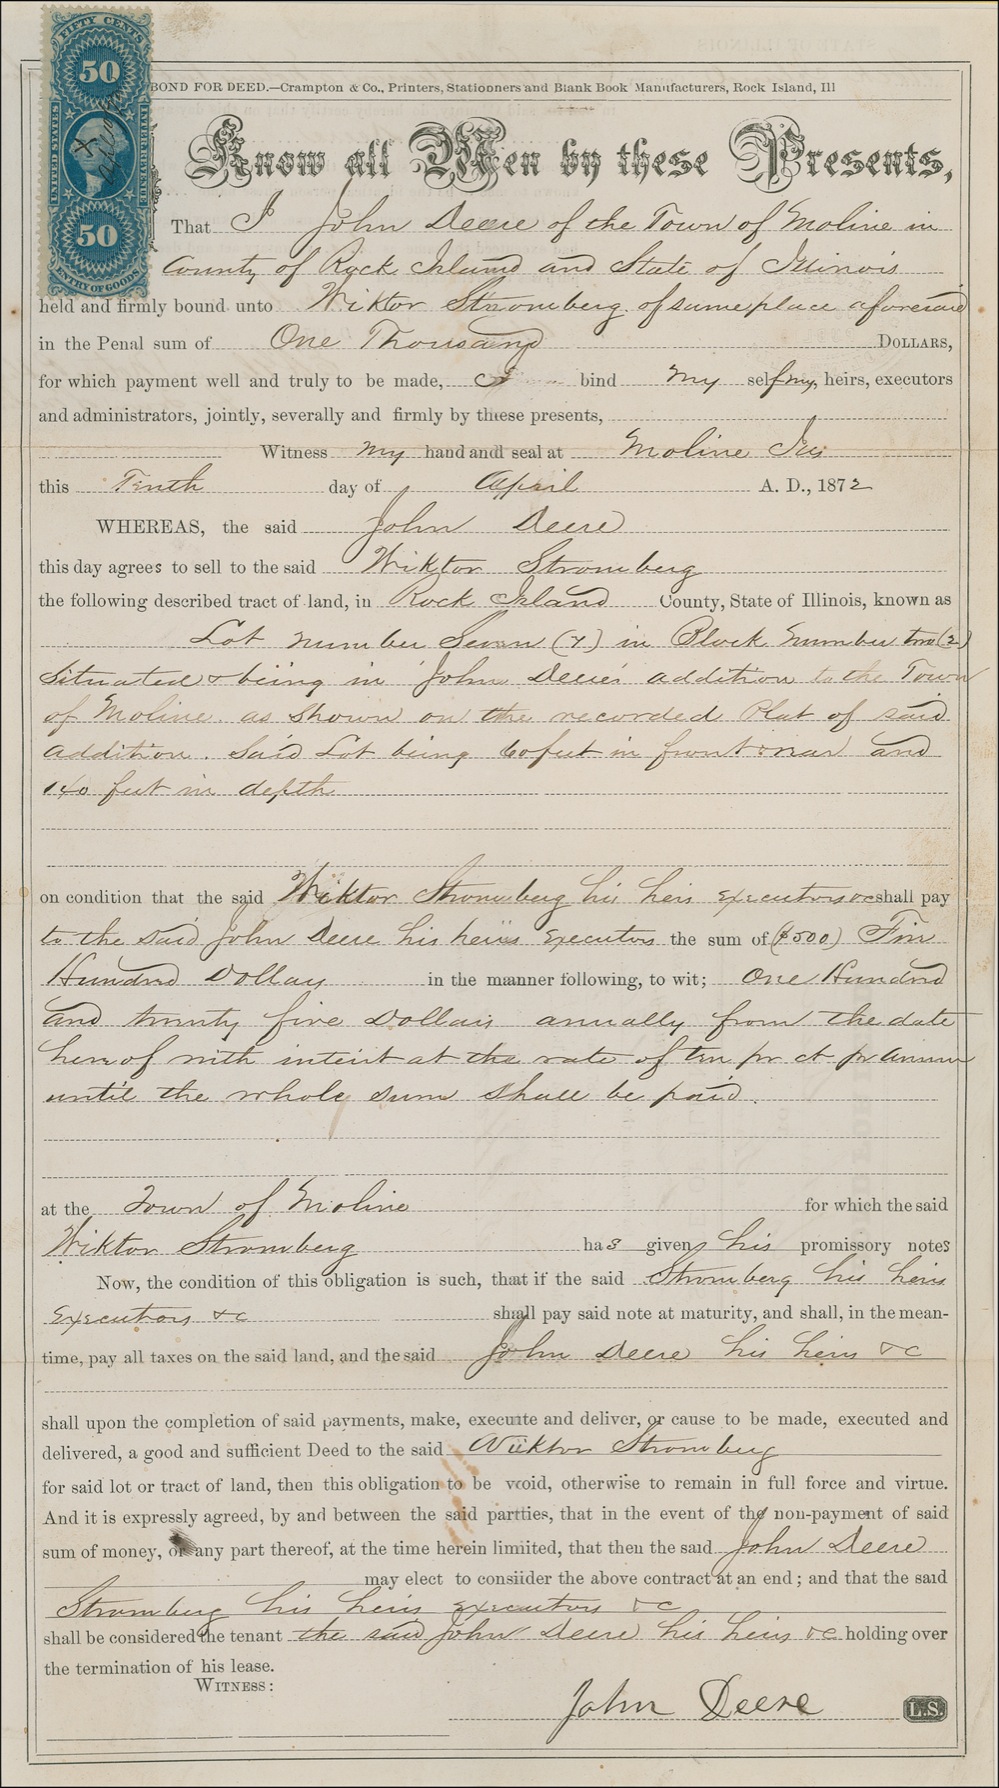 FIFTY CENTS
50
UNITED STATES
INTER. REVENUE
50
ENTRY OF GOODS
BOND FOR DEED.—Crampton & Co., Printers, Stationers and Blank Book Manufacturers, Rock Island, Ill
Know all Men by these Presents,
That I John Deere of the Town of Moline in
County of Rock Island and State of Illinois
held and firmly bound unto Wiktor Stromberg of same place aforesaid
in the Penal sum of One Thousand DOLLARS,
for which payment well and truly to be made, I bind my self my heirs, executors
and administrators, jointly, severally and firmly by these presents,
Witness my hand and seal at Moline Ills
this Tenth day of April A. D., 1872
WHEREAS, the said John Deere
this day agrees to sell to the said Wiktor Stromberg
the following described tract of land, in Rock Island County, State of Illinois, known as
Lot number Seven (7) in Block number two (2)
Situated & being in John Deere's addition to the Town
of Moline. as shown on the recorded Plat of said
addition. Said Lot being 60 feet in front & rear and
140 feet in depth
on condition that the said Wiktor Stromberg his heirs executors &c shall pay
to the said John Deere his heirs Executors the sum of ($500) Five
Hundred Dollars in the manner following, to wit; One Hundred
and twenty five Dollars annually from the date
hereof with interest at the rate of ten pr ct pr annum
until the whole sum shall be paid.
at the Town of Moline for which the said
Wiktor Stromberg has given his promissory notes
Now, the condition of this obligation is such, that if the said Stromberg his heirs
Executors &c shall pay said note at maturity, and shall, in the mean-
time, pay all taxes on the said land, and the said John Deere his heirs &c
shall upon the completion of said payments, make, execute and deliver, or cause to be made, executed and
delivered, a good and sufficient Deed to the said Wiktor Stromberg
for said lot or tract of land, then this obligation to be void, otherwise to remain in full force and virtue.
And it is expressly agreed, by and between the said parties, that in the event of the non-payment of said
sum of money, or any part thereof, at the time herein limited, that then the said John Deere
may elect to consider the above contract at an end; and that the said
Stromberg his heirs executors &c
shall be considered the tenant the said John Deere his heirs &c holding over
the termination of his lease.
WITNESS:
John Deere L.S.